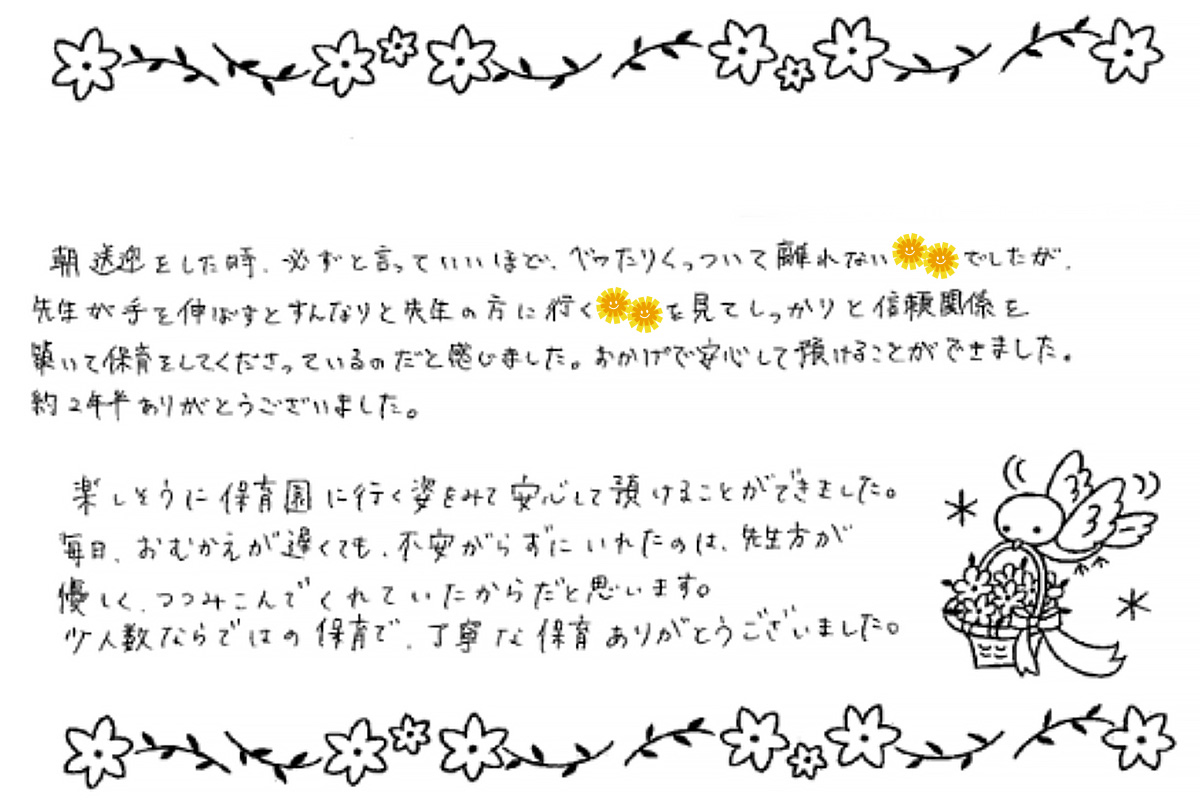 朝送迎をした時、必ずと言っていいほど、べったりくっついて離れないでしたが、
先生が手を伸ばすとすんなりと先生の方に行くを見てしっかりと信頼関係を
築いて保育をしてくださっているのだと感じました。おかげで安心して預けることができました。
約2年半ありがとうございました。
楽しそうに保育園に行く姿をみて安心して預けることができました。
毎日、おむかえが遅くても、不安がらずにいれたのは、先生方が
優しく、つつみこんでくれていたからだと思います。
少人数ならではの保育で、丁寧な保育ありがとうございました。